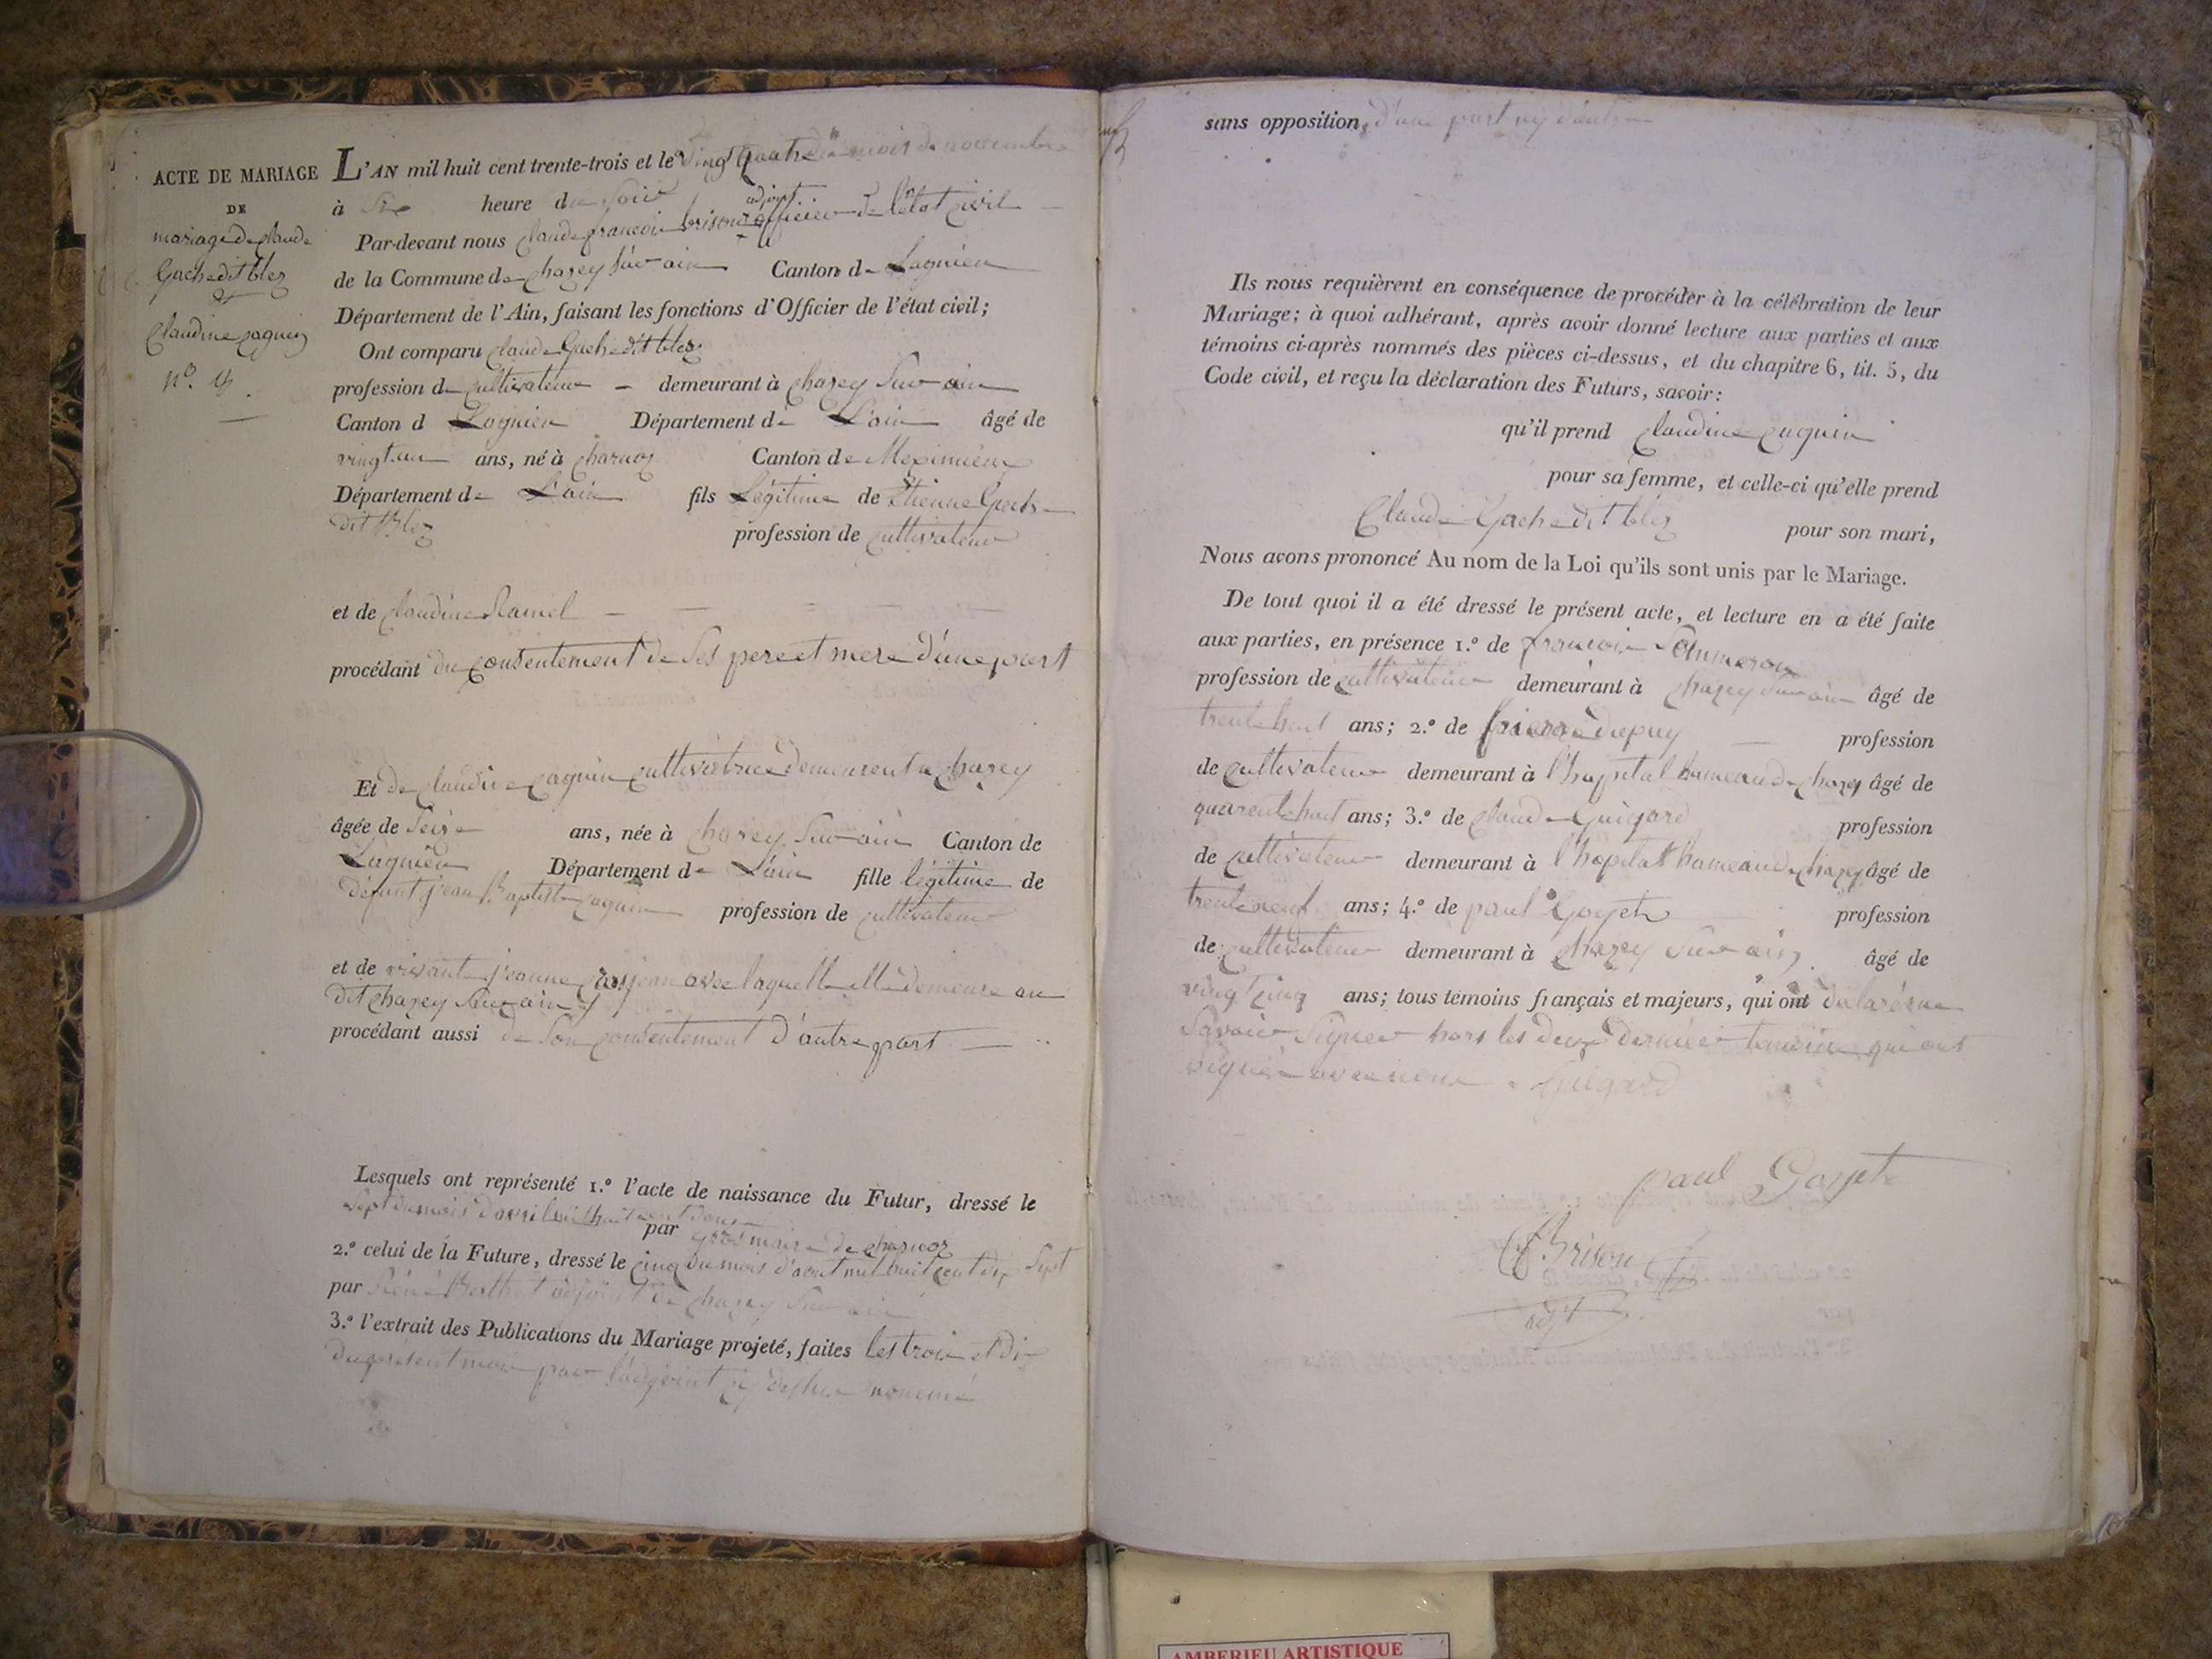 ACTE DE MARIAGE
DE
mariage de claude
Gache dit blez
et
Claudine paquin
L'AN mil huit cent trente-trois et le vingt quatre du mois de novembre
à Six heure du Soir
adjoint
Par-devant nous Claude francois brison officier de l'état civil
de la Commune de chazey Sur ain Canton de Lagnieu
Département de l'Ain, faisant les fonctions d'Officier de l'état civil;
Ont comparu claude Gache dit blez
profession de cultivateur demeurant à chazey Sur ain
Canton d Lagnieu Département de L'ain âgé de
vingt un ans, né à charnoz Canton de Meximieux
Département de L'ain fils Légitime de Etienne Gache
dit Blez profession de cultivateur
et de claudine Ramel
procédant du consentement de Ses pere et mere d'une part
Et de claudine paquin cultivatrice demeurent a chazey
âgée de Seize ans, née à chazey Sur ain Canton de
Lagnieu Département de L'ain fille légitime de
défunt jean Baptiste paquin profession de cultivateur
et de vivante jeanne avec laquelle elle demeure au
dit chazey Sur ain
procédant aussi de Son consentement d'autre part
Lesquels ont représenté 1.º l'acte de naissance du Futur, dressé le
Sept du mois d'avril mil huit cent douze
par gros maire de charnoz
2.º celui de la Future, dressé le cinq du mois d'aout mil huit cent dix Sept
par Réné Berthet adjoint de chazey Sur ain
3.º l'extrait des Publications du Mariage projeté, faites les trois et dix
du present mois par l'adjoint cy dessus nommé
sans opposition, d'une part ny d'autre
Ils nous requièrent en conséquence de procéder à la célébration de leur
Mariage; à quoi adhérant, après avoir donné lecture aux parties et aux
témoins ci-après nommés des pièces ci-dessus, et du chapitre 6, tit. 5, du
Code civil, et reçu la déclaration des Futurs, savoir:
qu'il prend claudine paquin
pour sa femme, et celle-ci qu'elle prend
Claude Gache dit blez pour son mari,
Nous avons prononcé Au nom de la Loi qu'ils sont unis par le Mariage.
De tout quoi il a été dressé le présent acte, et lecture en a été faite
aux parties, en présence 1.º de francois Sommeron
profession de cultivateur demeurant à chazey Sur ain âgé de
trente huit ans; 2.º de pierre dupuy profession
de cultivateur demeurant à l'hopital hameau de chazey âgé de
quarente huit ans; 3.º de claude Guigard profession
de cultivateur demeurant à l'hopital hameau de chazey âgé de
trente neuf ans; 4.º de paul Goyet profession
de cultivateur demeurant à chazey Sur ain âgé de
vingt cinq ans; tous témoins français et majeurs, qui ont déclaré ne
Savoir Signer hors les deux dernier temoin qui ont
signé avec nous Guigard
paul Goyet
Brison
adjt
AMBERIEU ARTISTIQUE